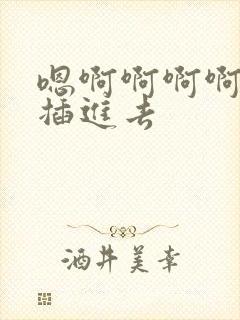 嗯啊啊啊啊
插進去
酒井美幸